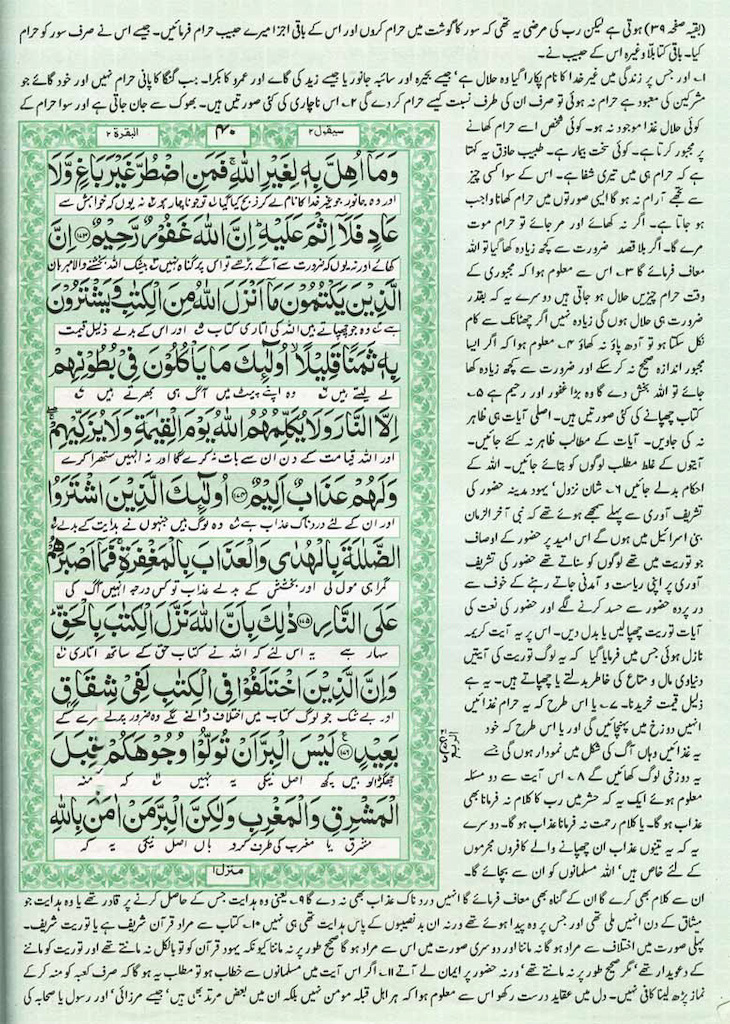 (بقیہ صفحہ ۳۹) ہوتی ہے لیکن رب کی مرضی یہ تھی کہ سور کا گوشت میں حرام کروں اور اس کے باقی اجزا میرے حبیب حرام فرمائیں۔ جیسے اس نے صرف سور کو حرام
کیا۔ باقی کتا بلا وغیرہ اس کے حبیب نے۔
۱۔ اور جس پر زندگی میں غیر خدا کا نام پکارا گیا وہ حلال ہے، جیسے بحیرہ اور سائبہ جانور یا جیسے زید کی گائے اور عمرو کا بکرا۔ جب گنگا کا پانی حرام نہیں اور خود گائے جو
مشرکین کی معبود ہے حرام نہ ہوئی تو صرف ان کی طرف نسبت کیسے حرام کر دے گی ۲۔ اس ناچاری کی کئی صورتیں ہیں۔ بھوک سے جان جاتی ہے اور سوا حرام کے
کوئی حلال غذا موجود نہ ہو۔ کوئی شخص اسے حرام کھانے
پر مجبور کرتا ہے۔ کوئی سخت بیمار ہے۔ طبیب حاذق یہ کہتا
ہے کہ حرام ہی میں تیری شفا ہے۔ اس کے سوا کسی چیز
سے تجھے آرام نہ ہو گا ایسی صورتوں میں حرام کھانا واجب
ہو جاتا ہے۔ اگر نہ کھائے اور مر جائے تو حرام موت
مرے گا۔ اگر بلا قصد ضرورت سے کچھ زیادہ کھا گیا تو اللہ
معاف فرمائے گا ۳۔ اس سے معلوم ہوا کہ مجبوری کے
وقت حرام چیزیں حلال ہو جاتی ہیں دوسرے یہ کہ بقدر
ضرورت ہی حلال ہوں گی زیادہ نہیں اگر چھٹانک سے کام
نکل سکتا ہو تو آدھ پاؤ نہ کھاؤ ۴۔ معلوم ہوا کہ اگر ایسا
مجبور اندازہ صحیح نہ کر سکے اور ضرورت سے کچھ زیادہ کھا
جائے تو اللہ بخش دے گا وہ بڑا غفور اور رحیم ہے ۵۔
کتاب چھپانے کی کئی صورتیں ہیں۔ اصلی آیات ہی ظاہر
نہ کی جاویں۔ آیات کے مطالب ظاہر نہ کئے جائیں۔
آیتوں کے غلط مطلب لوگوں کو بتائے جائیں۔ اللہ کے
احکام بدلے جائیں ۶۔ شان نزول، یہود مدینہ حضور کی
تشریف آوری سے پہلے سمجھے ہوئے تھے کہ نبی آخر الزمان
بنی اسرائیل میں ہوں گے اس امید پر حضور کے اوصاف
جو توریت میں تھے لوگوں کو سناتے تھے حضور کی تشریف
آوری پر اپنی ریاست و آمدنی جاتے رہنے کے خوف سے
در پردہ حضور سے حسد کرنے لگے اور حضور کی نعت کی
آیات توریت چھپالیں یا بدل دیں۔ اس پر یہ آیت کریمہ
نازل ہوئی جس میں فرمایا گیا کہ یہ لوگ توریت کی آیتیں
دنیاوی مال و متاع کی خاطر بدلتے یا چھپاتے ہیں۔ یہ ہے
ذلیل قیمت خریدنا۔ ۷۔ یا اس طرح کہ یہ حرام غذائیں
انہیں دوزخ میں پہنچائیں گی اور یا اس طرح کہ خود
یہ غذائیں وہاں آگ کی شکل میں نمودار ہوں گی جسے
یہ دوزخی لوگ کھائیں گے ۸۔ اس آیت سے دو مسئلہ
معلوم ہوئے ایک یہ کہ حشر میں رب کا کلام نہ فرمانا بھی
عذاب ہو گا۔ یا کلام رحمت نہ فرمانا عذاب ہو گا۔ دوسرے
یہ کہ یہ تینوں عذاب ان چھپانے والے کافروں مجرموں
کے لئے خاص ہیں، اللہ مسلمانوں کو ان سے بچائے گا۔
سیقول ۲
۴۰
البقرۃ ۲
وَمَآ اُهِلَّ بِهٖ لِغَيْرِ اللّٰهِ ۚ فَمَنِ اضْطُرَّ غَيْرَ بَاغٍ وَّلَا
اور وہ جانور جو غیر خدا کا نام لے کر ذبح کیا گیا تو جو ناچار ہو نہ یوں کہ خواہش سے
عَادٍ فَلَآ اِثْمَ عَلَيْهِ ؕ اِنَّ اللّٰهَ غَفُوْرٌ رَّحِيْمٌ ﴿۱۷۳﴾ اِنَّ
کھائے اور نہ یوں کہ ضرورت سے آگے بڑھے تو اس پر گناہ نہیں بیشک اللہ بخشنے والا مہربان
الَّذِيْنَ يَكْتُمُوْنَ مَآ اَنْزَلَ اللّٰهُ مِنَ الْكِتٰبِ وَيَشْتَرُوْنَ
ہے وہ جو چھپاتے ہیں اللہ کی اتاری کتاب اور اس کے بدلے ذلیل قیمت
بِهٖ ثَمَنًا قَلِيْلًا ۙ اُولٰٓئِكَ مَا يَاْكُلُوْنَ فِيْ بُطُوْنِهِمْ
لے لیتے ہیں وہ اپنے پیٹ میں آگ ہی بھرتے ہیں
اِلَّا النَّارَ وَلَا يُكَلِّمُهُمُ اللّٰهُ يَوْمَ الْقِيٰمَةِ وَلَا يُزَكِّيْهِمْ
اور اللہ قیامت کے دن ان سے بات نہ کرے گا اور نہ انہیں ستھرا کرے
وَلَهُمْ عَذَابٌ اَلِيْمٌ ﴿۱۷۴﴾ اُولٰٓئِكَ الَّذِيْنَ اشْتَرَوُا
اور ان کے لئے دردناک عذاب ہے وہ لوگ ہیں جنہوں نے ہدایت کے بدلے
الضَّلٰلَةَ بِالْهُدٰى وَالْعَذَابَ بِالْمَغْفِرَةِ ۚ فَمَآ اَصْبَرَهُمْ
گمراہی مول لی اور بخشش کے بدلے عذاب تو کس درجہ انہیں آگ کی
عَلَى النَّارِ ﴿۱۷۵﴾ ذٰلِكَ بِاَنَّ اللّٰهَ نَزَّلَ الْكِتٰبَ بِالْحَقِّ ؕ
سہار ہے یہ اس لئے کہ اللہ نے کتاب حق کے ساتھ اتاری
وَاِنَّ الَّذِيْنَ اخْتَلَفُوْا فِي الْكِتٰبِ لَفِيْ شِقَاقٍۭ
اور بے شک جو لوگ کتاب میں اختلاف ڈالنے لگے وہ ضرور پرلے سرے کے
بَعِيْدٍ ﴿۱۷۶﴾ لَيْسَ الْبِرَّ اَنْ تُوَلُّوْا وُجُوْهَكُمْ قِبَلَ
جھگڑالو ہیں کچھ اصل نیکی یہ نہیں کہ منہ
الْمَشْرِقِ وَالْمَغْرِبِ وَلٰكِنَّ الْبِرَّ مَنْ اٰمَنَ بِاللّٰهِ
مشرق یا مغرب کی طرف کرو ہاں اصل نیکی یہ کہ
منزل ۱
الربع
ان سے کلام بھی کرے گا ان کے گناہ بھی معاف فرمائے گا انہیں دردناک عذاب بھی نہ دے گا ۹۔ یعنی وہ ہدایت جس کے حاصل کرنے پر قادر تھے یا وہ ہدایت جو
میثاق کے دن انہیں ملی تھی اور جس پر وہ پیدا ہوئے تھے ورنہ ان بدنصیبوں کے پاس ہدایت تھی ہی نہیں ۱۰۔ کتاب سے مراد قرآن شریف ہے یا توریت شریف۔
پہلی صورت میں اختلاف سے مراد ہو گا نہ ماننا اور دوسری صورت میں اس سے مراد ہو گا صحیح طور پر نہ ماننا کیونکہ یہود قرآن کو تو بالکل نہ مانتے تھے اور توریت کو ماننے
کے دعویدار تھے، مگر صحیح طور پر نہ مانتے تھے، ورنہ حضور پر ایمان لے آتے ۱۱۔ اگر اس آیت میں مسلمانوں سے خطاب ہو تو مطلب یہ ہو گا کہ صرف کعبہ کو منہ کر کے
نماز پڑھ لینا کافی نہیں۔ دل میں عقاید درست رکھو اس سے معلوم ہوا کہ ہر اہل قبلہ مومن نہیں بلکہ ان میں بعض مرتد بھی ہیں، جیسے مرزائی، اور رسول یا صحابہ کی